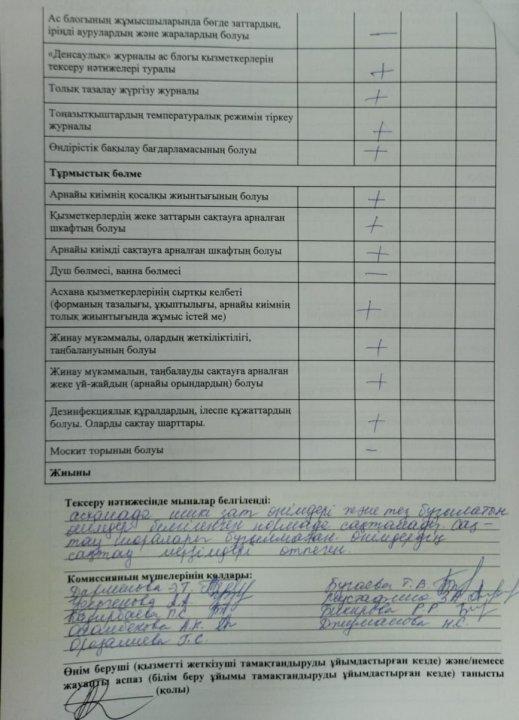 Ас блогының жұмысшыларында бөгде заттардың,
іріңді аурулардың және жаралардың болуы —
«Денсаулық» журналы ас блогы қызметкерлерін
тексеру нәтижелері туралы +
Толық тазалау жүргізу журналы +
Тоңазытқыштардың температуралық режимін тіркеу
журналы +
Өндірістік бақылау бағдарламасының болуы +
Тұрмыстық бөлме
Арнайы киімнің қосалқы жиынтығының болуы +
Қызметкерлердің жеке заттарын сақтауға арналған
шкафтың болуы +
Арнайы киімді сақтауға арналған шкафтың болуы +
Душ бөлмесі, ванна бөлмесі —
Асхана қызметкерлерінің сыртқы келбеті
(форманың тазалығы, ұқыптылығы, арнайы киімнің +
толық жиынтығында жұмыс істей ме)
Жинау мүкәммалы, олардың жеткіліктілігі,
таңбалануының болуы +
Жинау мүкәммалын, таңбалауды сақтауға арналған
жеке үй-жайдың (арнайы орындардың) болуы +
Дезинфекциялық құралдардың, ілеспе құжаттардың
болуы. Оларды сақтау шарттары. +
Москит торының болуы -
Жиыны
Тексеру нәтижесінде мыналар белгіленді:
асханада шикі зат өнімдері және тез бұзылатын
өнімдер белгіленген нормада сақталады. Сақ-
тау шаралары бұзылмаған. Өнімдердің
сақтау мерзімдері өтпеген.
Комиссияның мүшелерінің қолдары:
Дарманова Э.Т. Бугаева Г.В.
А.А.
Кабирбаева П.С. Бекирова Р.Р.
А.К. Джуманова Н.С.
Оразалиева Г.С.
Өнім беруші (қызметті жеткізуші тамақтандыруды ұйымдастырған кезде) және/немесе
жауапты аспаз (білім беру ұйымы тамақтандыруды ұйымдастырған кезде) танысты
(қолы)